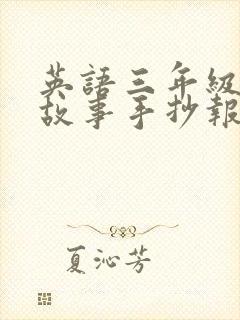 英語三年級
故事手抄報
夏沁芳